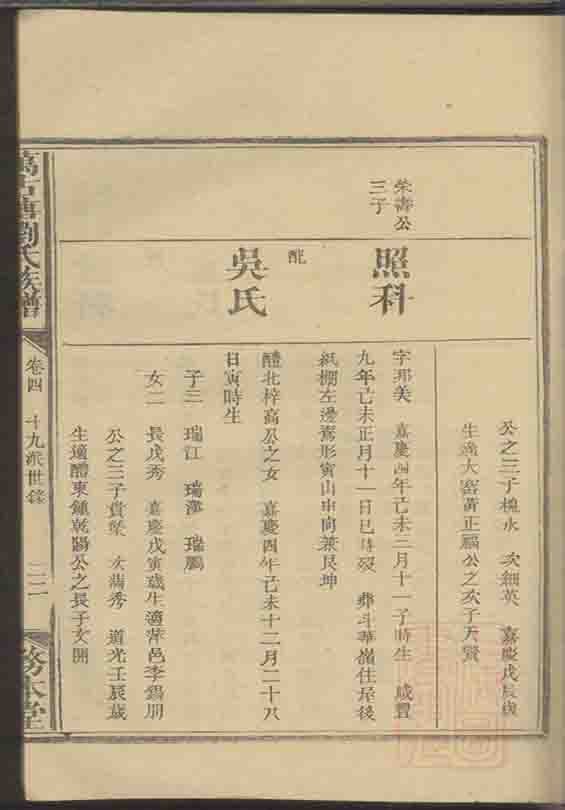 公之三子槐水　次細英　嘉慶戊辰歲
生適大窰黃正賜公之次子天賢
榮壽公
三子
照科
字邦美　嘉慶四年己未三月十一子時生　咸豐
九年己未正月十一日巳時歿　葬斗華嶺住屋後
紙棚左邊鴛形寅山申向兼艮坤
配
吳氏
醴北梓高公之女　嘉慶四年己未十二月二十八
日寅時生
子三　瑞江　瑞澤　瑞鵬
女二　長戊秀　嘉慶戊寅歲生適萍邑李錫朋
公之三子貴榮　次滿秀　道光壬辰歲
生適醴東鍾乾陽公之長子文開
劉氏族譜
卷四　十九派世錄
務本堂